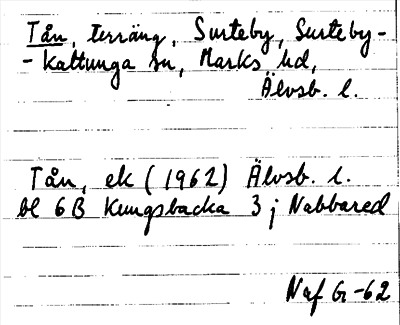 Tån, terräng, Surteby, Surteby-
-Kattunga sn, Marks hd,
Älvsb. l.
Tån, ek (1962) Älvsb. l.
bl 6B Kungsbacka 3 j Nabbared
Naf G-62